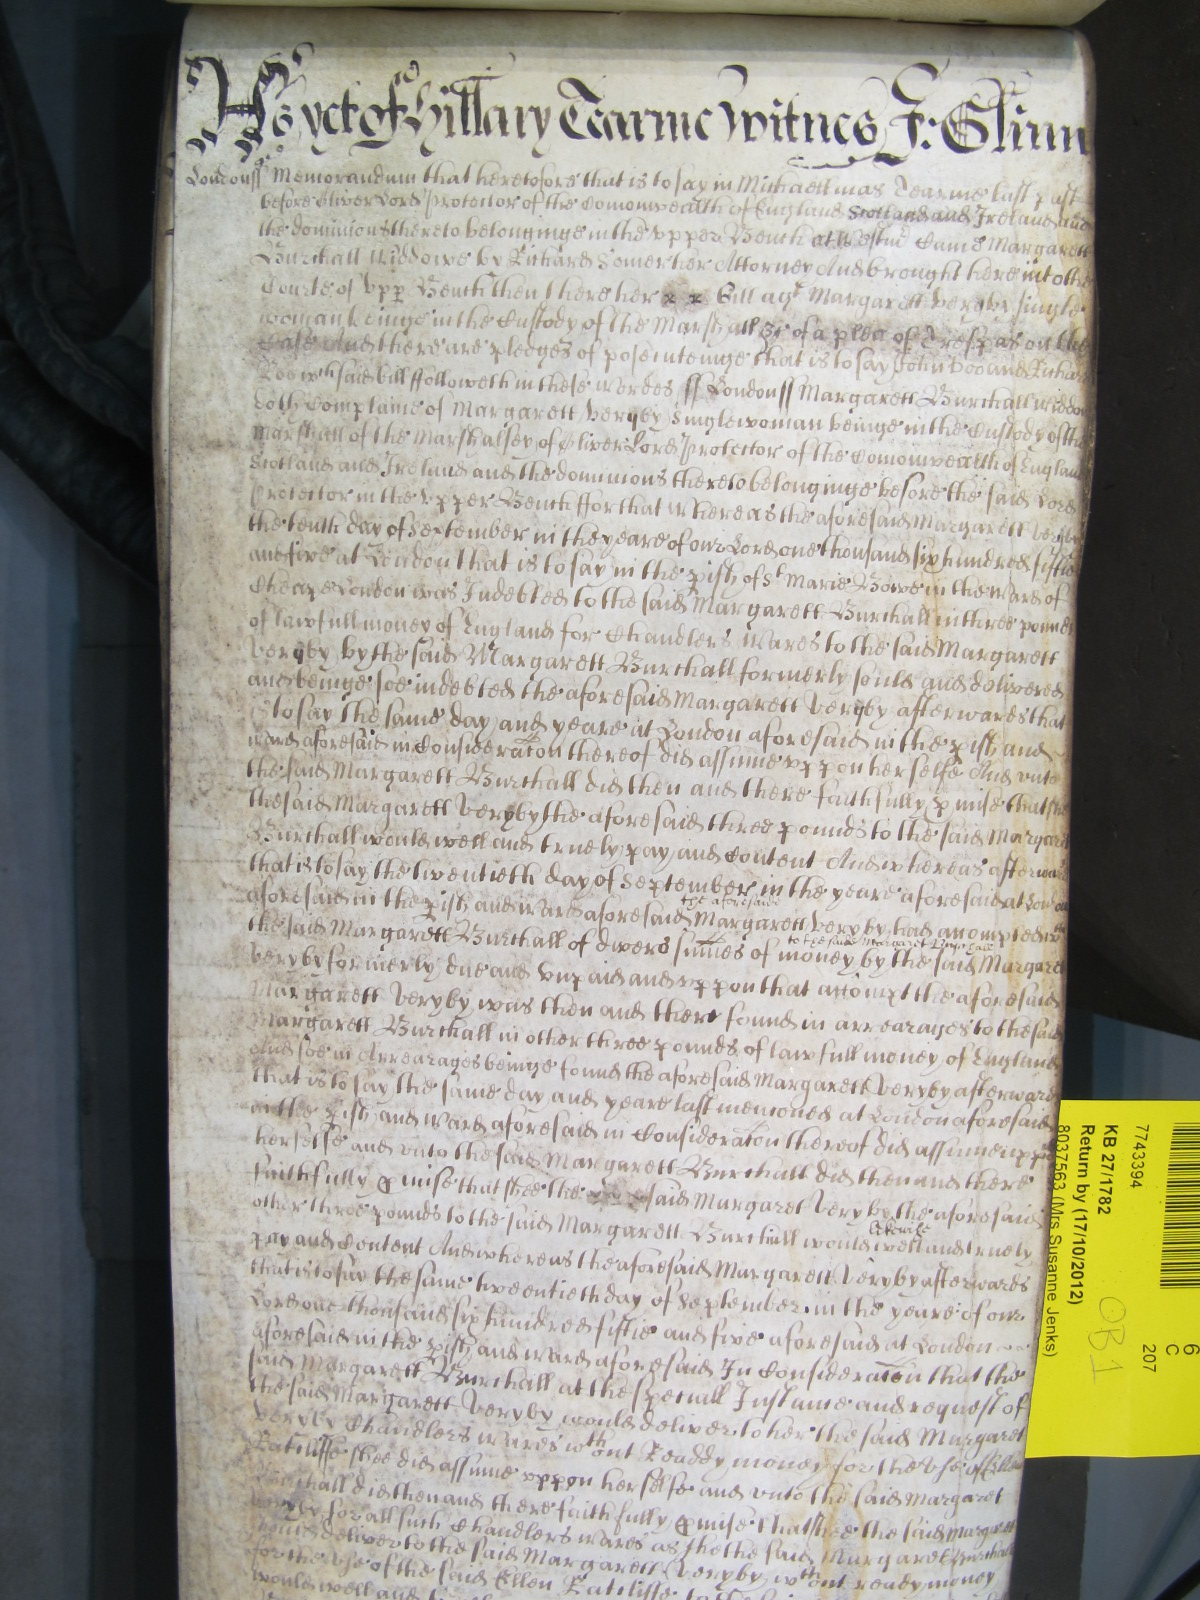 As yet of Hillary Tearme Witnes J: Glinn
London ss Memorandum that heretofore that is to say in Michaellmas Tearme last past
before Oliver Lord Protector of the Comonwealth of England Scotland and Ireland and
the dominions thereto belonginge in the upper Bench at Westmr Came Margarett
Burchall Widdowe by Richard Somer her Attorney And brought here into the
Courte of upp Bench then there her bill agt Margarett Veryby single
woman beinge in the Custody of the Marshall &c of a plea of Trespas on the
Case And there are pledges of prosecuteinge that is to say John Doo and Richard
Roo wch said bill followeth in these wordes ss London ss Margarett Burchall widdow
doth Complaine of Margarett Veryby Singlewoman beinge in the Custody of the
Marshall of the Marshalsey of Oliver Lord Protector of the Comonwealth of England
Scotland and Ireland and the dominions thereto belonginge before the said Lord
Protector in the upper Bench ffor that whereas the aforesaid Margarett Veryby
the tenth day of September in the yeare of our Lord one thousand six hundred fiftie
and five at London that is to say in the pish of St Marie Bowe in the Ward of
Cheape London was Indebted to the said Margarett Burchall in three pounds
of lawfull money of England for Chandlers Wares to the said Margarett
Veryby by the said Margarett Burchall formerly sould and delivered
and beinge soe indebted the aforesaid Margarett Veryby afterwards that
is to say the same day and yeare at London aforesaid in the pish and
ward aforesaid in Consideracon thereof did assume uppon herselfe And unto
the said Margarett Burchall did then and there faithfully pmise that she
the said Margarett Veryby the aforesaid three pounds to the said Margarett
Burchall would well and truely pay and Content And whereas afterwards
that is to say the twentieth day of September in the yeare aforesaid at London
aforesaid in the pish and ward aforesaid the aforesaid Margarett Veryby had accompted wth
the said Margarett Burchall of divers sumes of money to the said Margaret Burchall by the said Margarett
Veryby formerly due and unpaid and uppon that accompt the aforesaid
Margarett Veryby was then and there found in arrearages to the said
Margarett Burchall in other three pounds of lawfull money of England
And soe in Arrearages beinge found the aforesaid Margarett Veryby afterwards
that is to say the same day and yeare last menconed at London aforesaid
in the pish and ward aforesaid in Consideracon thereof did assume upp
herselfe and unto the said Margarett Burchall did then and there
faithfully pmise that shee the said Margaret Veryby the aforesaid
other three pounds to the said Margarett Burchall would likewise well and truely
pay and Content And whereas the aforesaid Margarett Veryby afterwards
that is to say the same twentieth day of September in the yeare of our
Lord one thousand six hundred fiftie and five aforesaid at London
aforesaid in the pish and ward aforesaid In Consideracon that the
said Margarett Burchall at the speciall Instance and request of
the said Margarett Veryby would deliver to her the said Margaret
Veryby Chandlers wares wthout Readdy money for the use of Ellen
Ratcliffe shee did assume uppon herselfe and unto the said Margaret
Burchall did then and there faithfully pmise that shee the said Margarett
Veryby for all such Chandlers wares as shee the said Margaret Burchall
would deliver to the said Margarett Veryby wthout ready money
for the use of the said Ellen Ratcliffe
would well and
7743394
KB 27/1782
Return by (17/10/2012)
8037563 (Mrs Susanne Jenks)
6
C
207
OB1